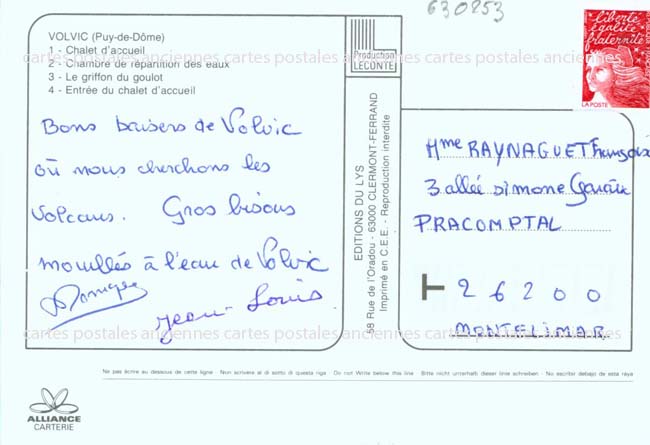 630253
VOLVIC (Puy-de-Dôme)
1 - Chalet d'accueil
2 - Chambre de répartition des eaux
3 - Le griffon du goulot
4 - Entrée du chalet d'accueil
Production
LECONTE
Liberté
égalité
fraternité
LA POSTE
cartes postales anciennes cartes postales anciennes cartes postales anciennes
Bons baisers de Volvic
où nous cherchons les
Volcans. Gros bisous
mouillés à l'eau de Volvic
Jean-Louis
EDITIONS DU LYS
58 Rue de l'Oradou - 63000 CLERMONT-FERRAND
Imprimé en C.E.E. - Reproduction interdite
Mme RAYNAGUET Françoise
3 allée simone
PRACOMPTAL
26200
MONTELIMAR
cartes postales anciennes cartes postales anciennes cartes postales anciennes
Ne pas écrire au dessous de cette ligne - Non scrivere al di sotto di questa riga - Do not Write below this line - Bitte nicht unterhalb dieser linie schreiben - No escribir debajo de esta raya
ALLIANCE
CARTERIE